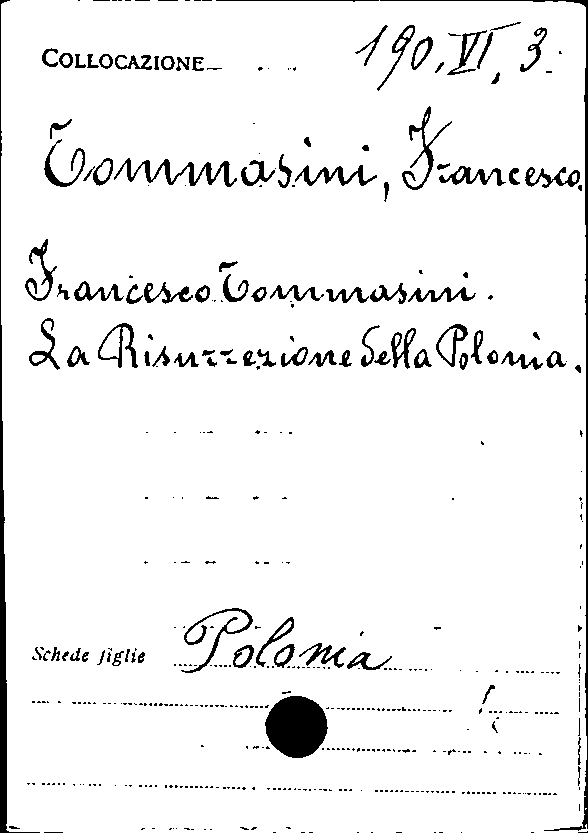 COLLOCAZIONE 190. VI. 3.
Tommasini, Francesco.
Francesco Tommasini.
La Risurrezione della Polonia.
Schede figlie Polonia